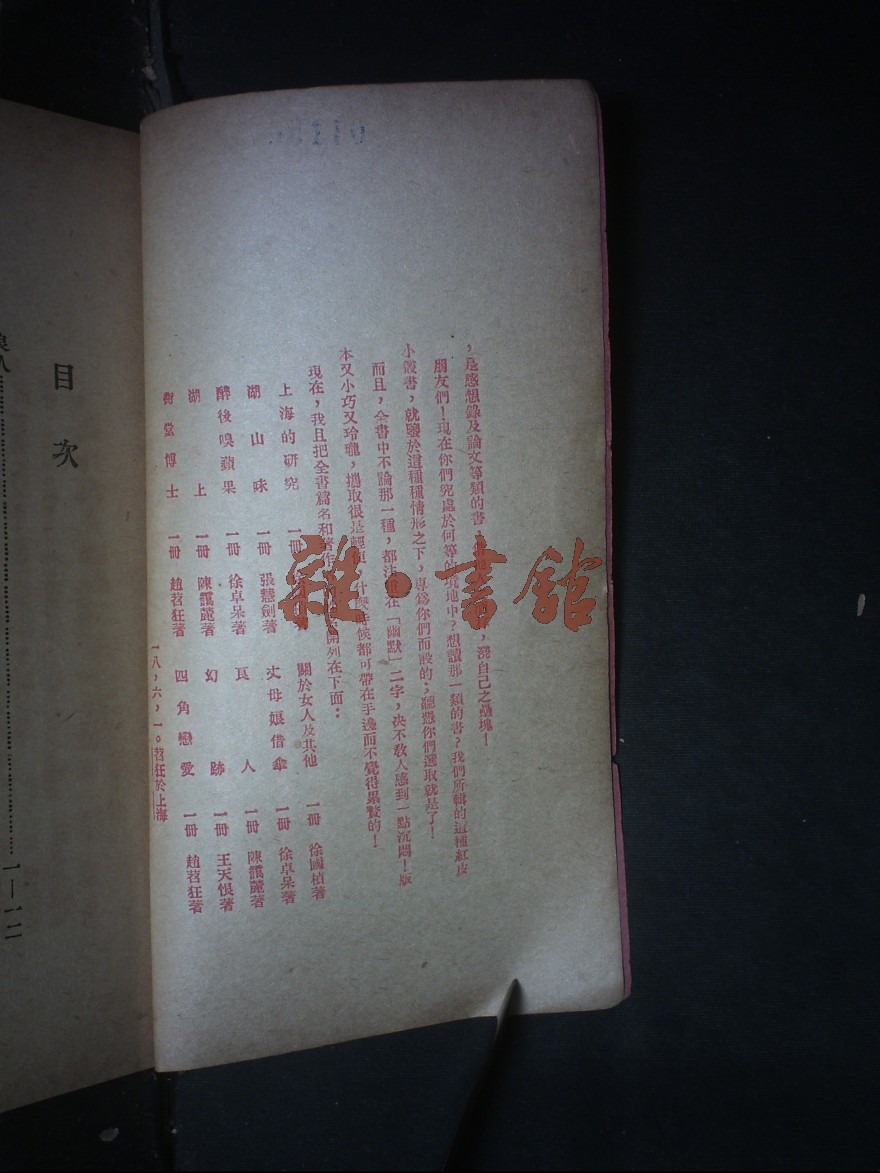 ，是感想錄及論文等類的書，澆自己之壘塊！
朋友們！現在你們究處於何等的境地中？想讀那一類的書？我們所輯的這種紅皮
小叢書，就鑒於這種種情形之下，專爲你們而設的；聽憑你們選取就是了！
而且，全書中不論那一種，都注重在「幽默」二字，决不敎人感到一點沉悶！版
本又小巧又玲瓏，攜取很是輕便，什麽時候都可帶在手邊而不覺得累贅的！
現在，我且把全書篇名和著作開列在下面：
上海的研究　一冊　著　關於女人及其他　一冊　徐國楨著
湖山味　一冊　張慧劍著　丈母娘借傘　一冊　徐卓呆著
醉後嗅蘋果　一冊　徐卓呆著　瓦人　一冊　陳靄麓著
湖上　一冊　陳靄麓著　幻跡　一冊　王天恨著
堂博士　一冊　趙苕狂著　四角戀愛　一冊　趙苕狂著
一八，六，一。苕狂於上海
雜·書館
目次
一—一二